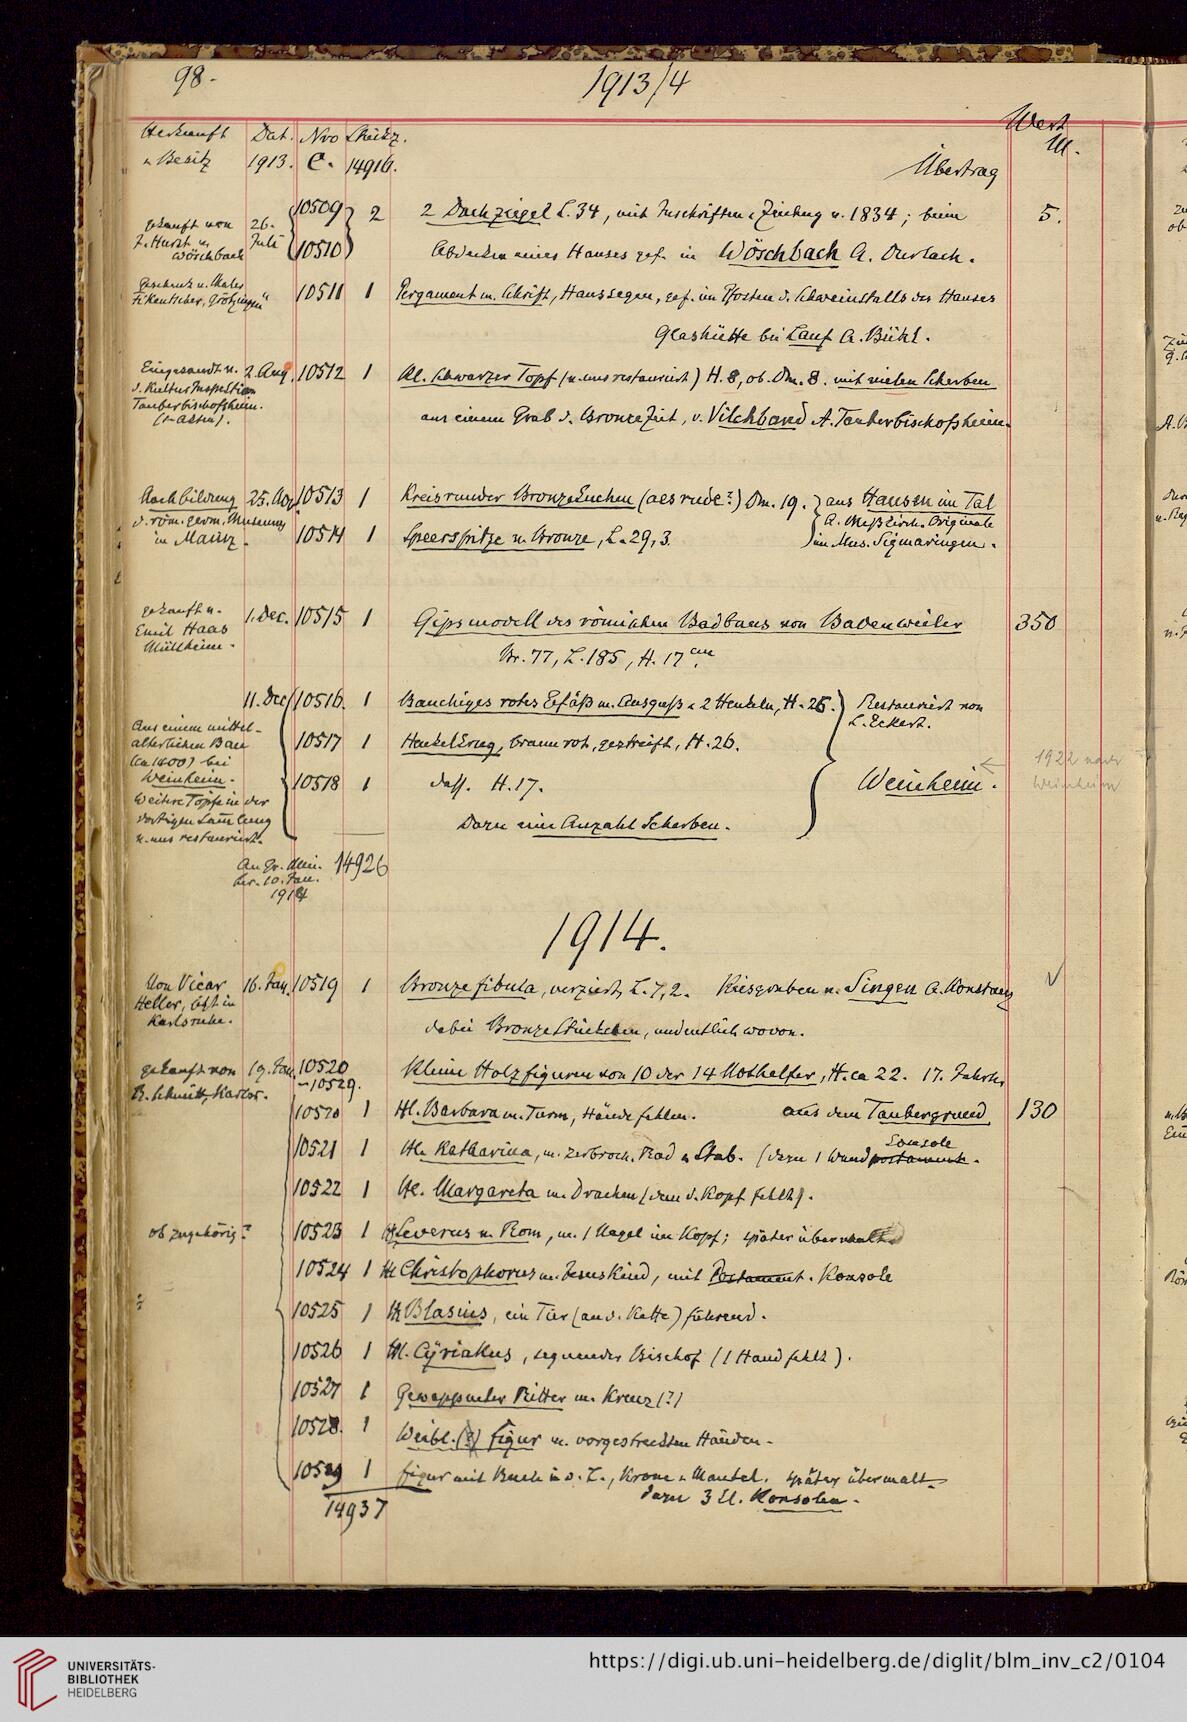 98.
1913/4
Herkunft Dat. Nro Stückz. Wert
u. Besitz 1913. C. 14916. Übertrag M.
gekauft von 26. 10509 2 2 Dachziegel L. 34, mit Inschriften u. Zeichng v. 1834; beim 5.
Z. Hurst u. Juli 10510 Abdecken eines Hauses gef. in Wöschbach A. Durlach.
Wöschbach
Geschenk v. Maler 10511 1 Pergament m. Schrift, Haussegen, gef. im Pfosten d. Schweinstalls des Hauses
Fikentscher, Grötzingen
Glashütte bei Lauf A. Bühl.
Eingesandt v. 2. Aug. 10512 1 Kl. schwarzer Topf (v. uns restauriert) H. 8, ob. Dm. 8. mit vielen Scherben
d. Kultur Inspektion
Tauberbischofsheim. aus einem Grab d. Bronzezeit, v. Vilchband A. Tauberbischofsheim.
(s. Akten).
Nachbildung 25. Nov 10513 1 Kreisrunder Bronzekuchen (aes rude?) Dm. 19. aus Hausen im Tal
d. röm. germ. Museums A. Meßkirch. Originale
in Mainz. 10514 1 Speerspitze v. Bronze, L. 29,3. im Mus. Sigmaringen.
gekauft v. 1. Dec. 10515 1 Gipsmodell des römischen Badbaus von Badenweiler 350
Emil Haas
Müllheim. Br. 77, L. 185, H. 17 cm.
11. Dec 10516. 1 Bauchiges rotes Gefäß m. Ausguß u. 2 Henkeln, H. 26. Restauriert von
L. Eckert.
Aus einem mittel-
alterlichen Bau 10517 1 Henkelkrug, braunrot, gestreift, H. 26.
(ca 1400?) bei
Weinheim. 10518 1 dass. H. 17. Weinheim. ← 1922 nach
Weinheim
Weitere Töpfe in der
dortigen Samlung Dazu eine Anzahl Scherben.
v. uns restauriert.
An Gr. Min. 14926
ber. 10. Jan.
1914
1914.
Von Vicar 16. Jan. 10519 1 Bronzefibula, verziert, L. 7,2. Kiesgruben v. Singen A. Konstanz ✓
Heller, bzt in
Karlsruhe. dabei Bronzestückchen, undeutlich wovon.
gekauft von 19. Jan. 10520 Kleine Holzfiguren von 10 der 14 Nothelfer, H. ca 22. 17. Jahrh.
– 10529.
R. Schmitt, Karlsr.
10520 1 Hl. Barbara m. Turm, Hände fehlen. aus dem Taubergrund 130
10521 1 Hl. Katharina, m. zerbroch. Rad u. Stab. (dazu 1 Wandpostament. Konsole
10522 1 Hl. Margareta m. Drachen (dem d. Kopf fehlt).
ob zugehörig? 10523 1 Hl Severus v. Rom, m. 1 Nagel im Kopf; später übermalt
10524 1 Hl Christophorus m. Jesuskind, mit Postament. Konsole
10525 1 Hl Blasius, ein Tier (an d. Kette) führend.
10526 1 Hl. Cÿriakus, segnender Bischof (1 Hand fehlt).
10527 1 Gewappneter Ritter m. Kreuz (?)
10528. 1 Weibl. (?) Figur m. vorgestreckten Händen.
10529 1 Figur mit Buch in d. L., Krone u. Mantel. später übermalt.
14937 dazu 3 kl. Konsolen.
UNIVERSITÄTS-
BIBLIOTHEK
HEIDELBERG
https://digi.ub.uni-heidelberg.de/diglit/blm_inv_c2/0104